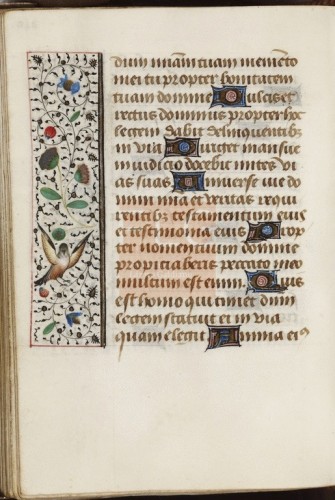 dum miam tuam memeto
mei tu propter bonitatem
tuam domine Dulcis et
rectus dominus propter hoc
legem dabit delinquentibz
in via Diriget mansue
in iudicio docebit mites vi
as suas Universe vie do
mini mia et veritas requi
rentibz testamentum eius
et testimonia eius Prop
ter nomen tuum domine
propitiaberis peccato meo
multum est enim Quis
est homo qui timet dnm
legem statuit ei in via
quam elegit Anima eiꝰ